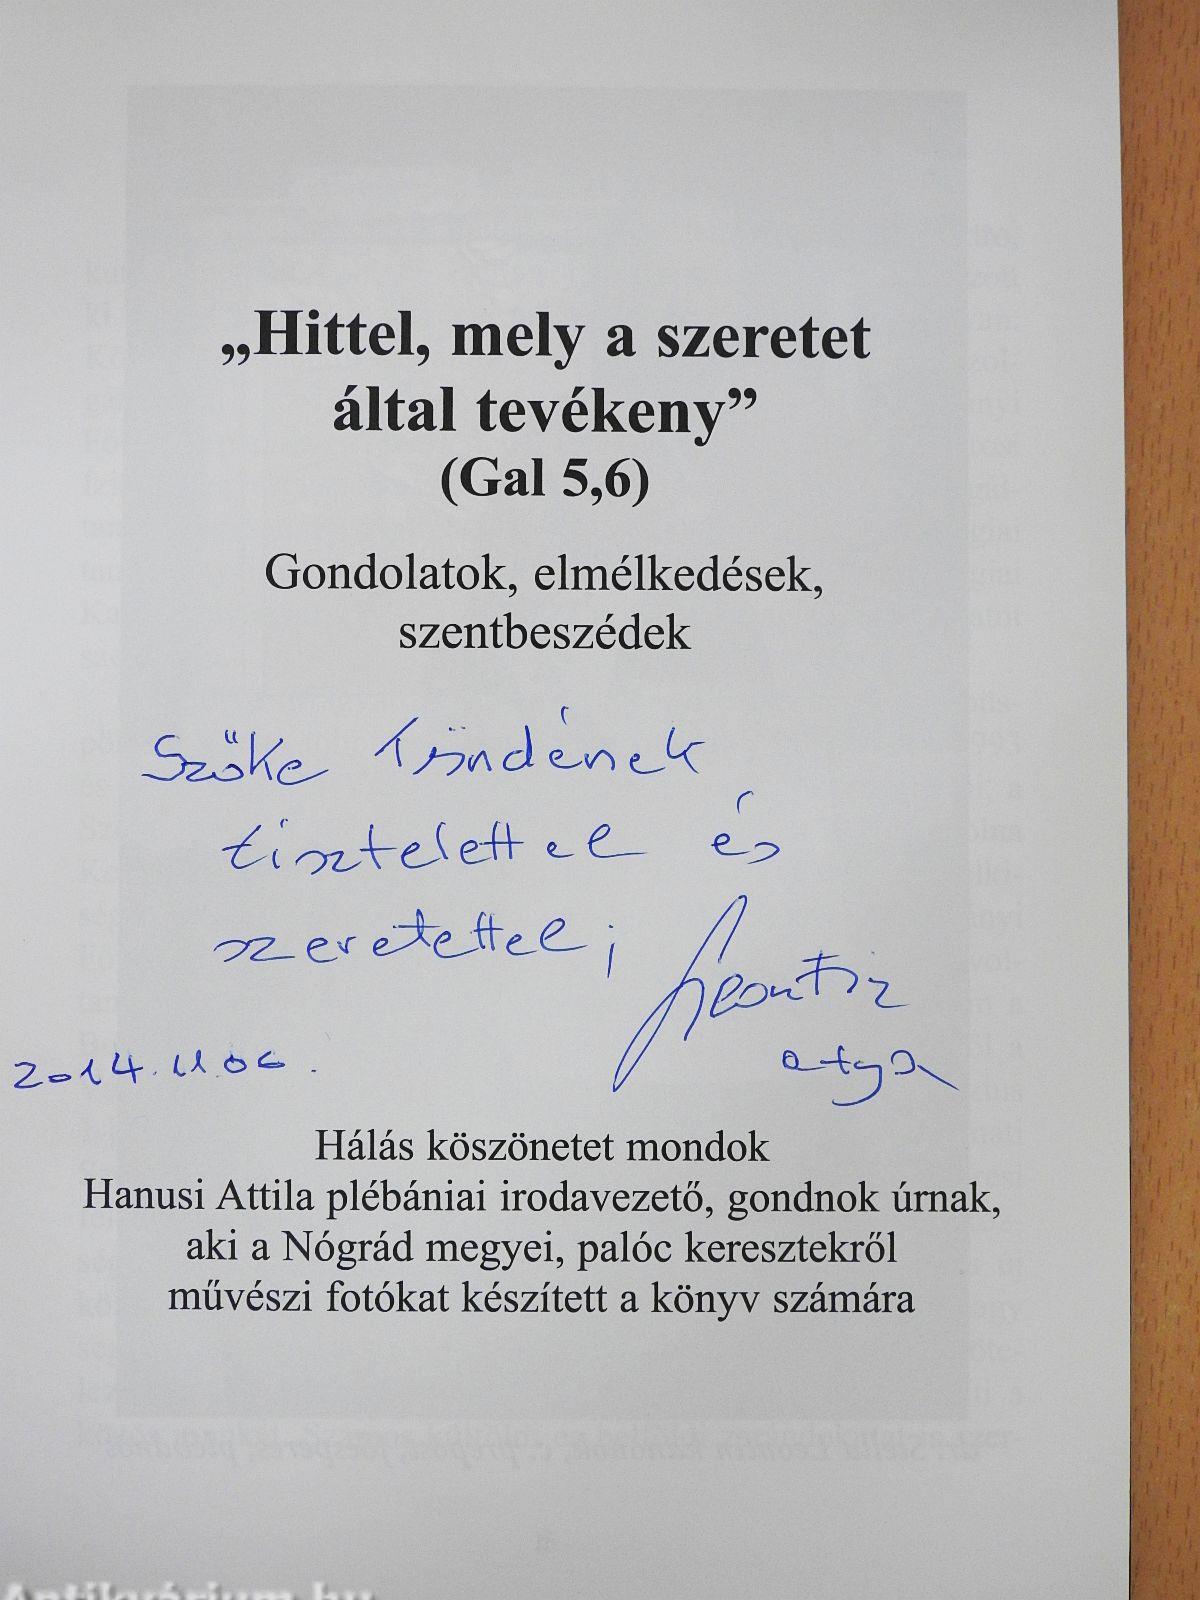 „Hittel, mely a szeretet
által tevékeny”
(Gal 5,6)
Gondolatok, elmélkedések,
szentbeszédek
Szőke Tündének
tisztelettel és
szeretettel;
Leontin
atya
2014.11.06.
Hálás köszönetet mondok
Hanusi Attila plébániai irodavezető, gondnok úrnak,
aki a Nógrád megyei, palóc keresztekről
művészi fotókat készített a könyv számára
Antikvárium.hu